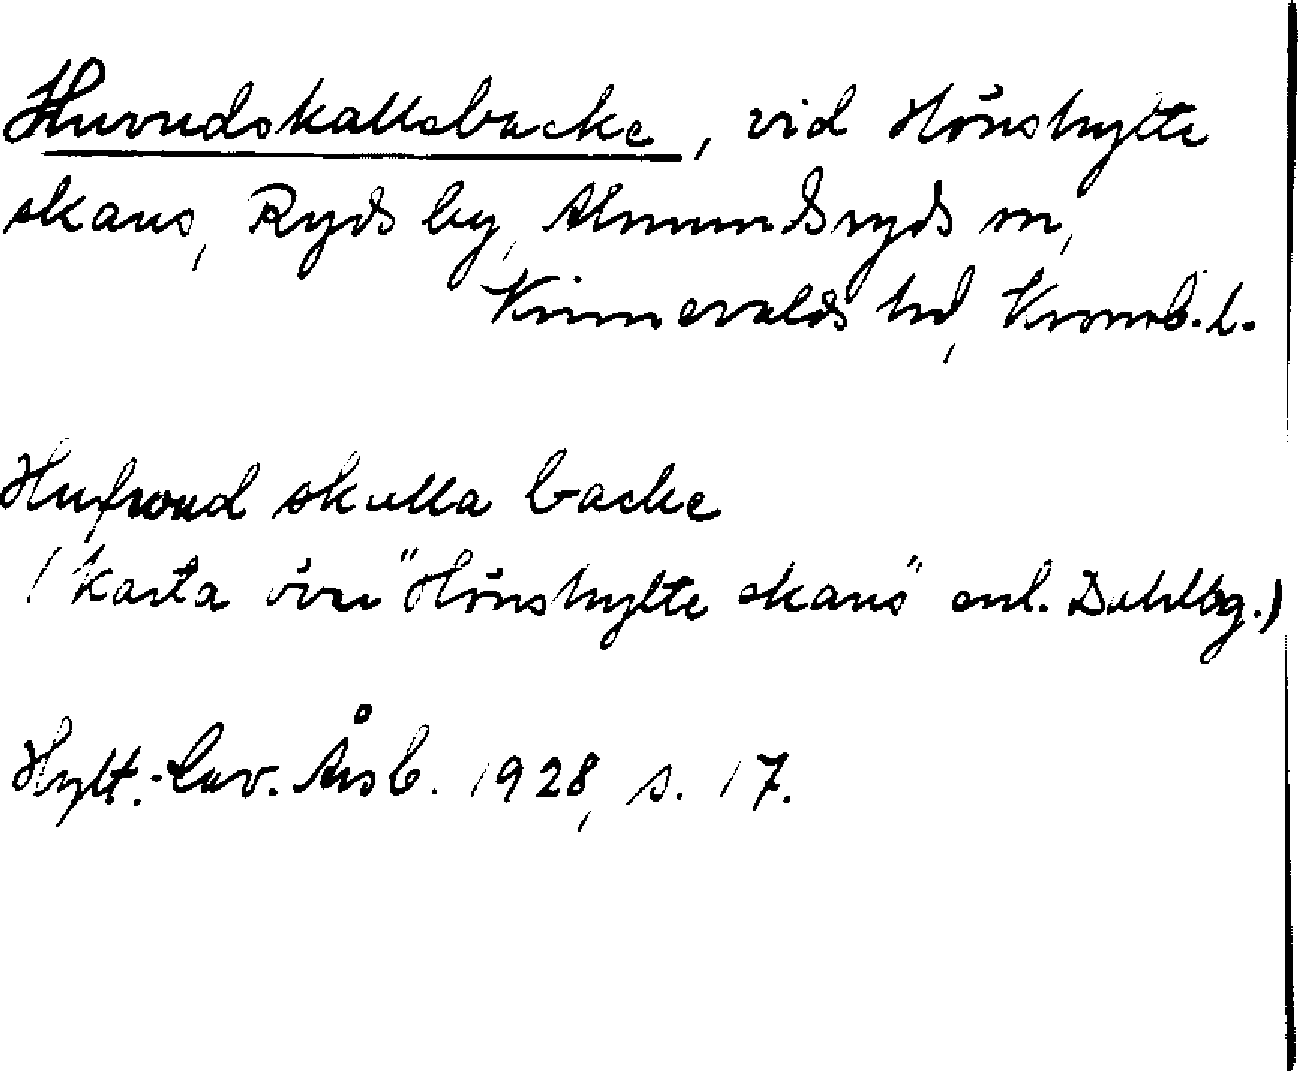 Huvudskallebacke, vid Hönshylte
skans, Ryds by, Almundsryds sn,
Kinnevalds hd, Kronob. l.
Hufwud skalla backe
(Karta över "Hönshylte skans" enl. Dahlbg.)
Hylt.-Cav. Årsb. 1928, s. 17.